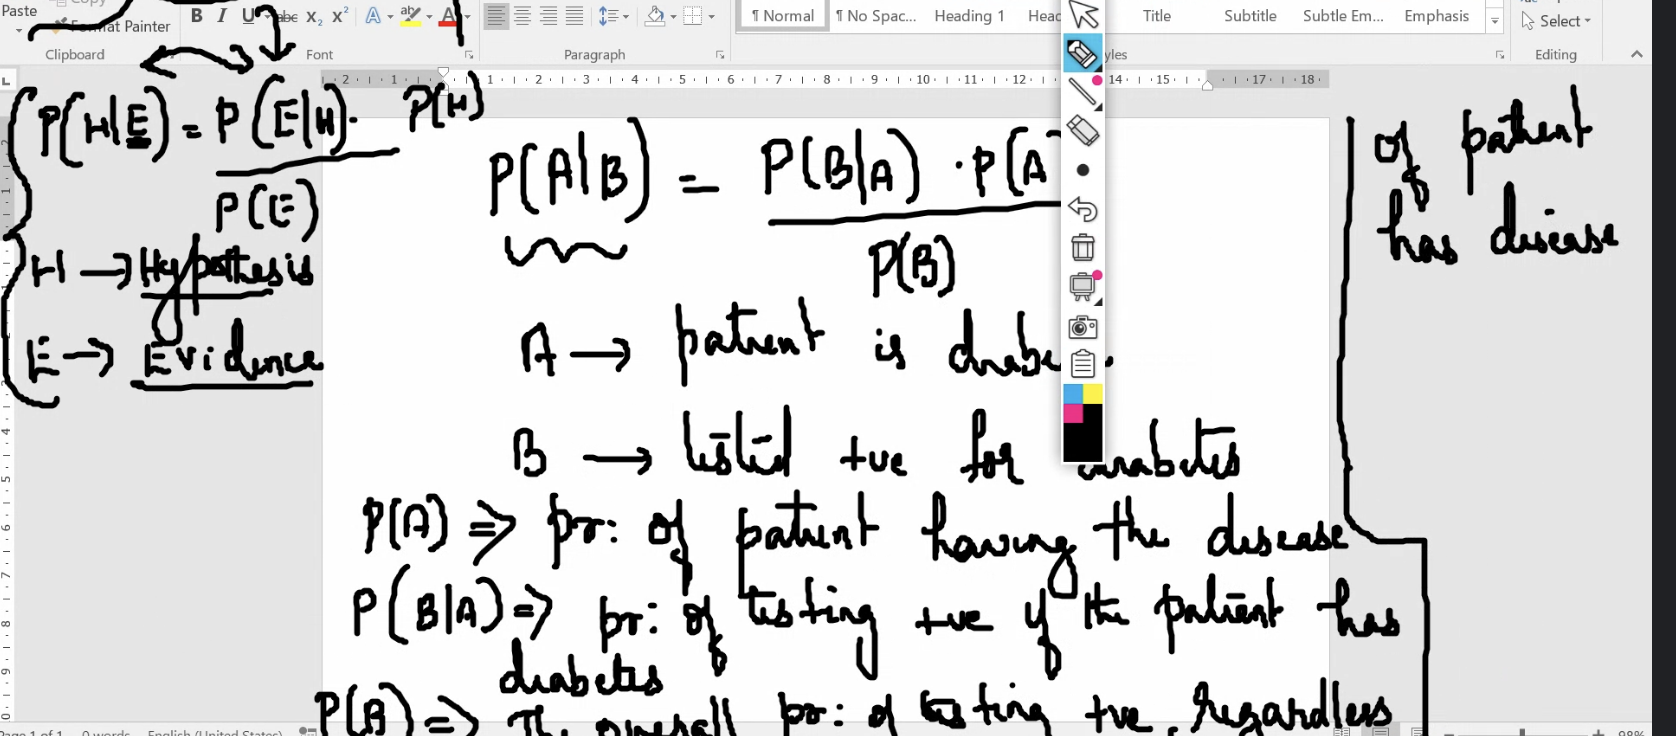 Paste
Copy
Format Painter
Clipboard
B I U abc X₂ X² A ab A
Font
Paragraph
¶ Normal
¶ No Spac...
Heading 1
Head
Title
Subtitle
Subtle Em...
Emphasis
yles
Select
Editing
2 1 1 2 3 4 5 6 7 8 9 10 11 12 14 15 17 18
P(H|E) = P(E|H) · P(H)
P(E)
H → Hypothesis
E → Evidence
P(A|B) = P(B|A) · P(A
P(B)
A → patient is diabe
B → tested +ve for diabetes
P(A) ⇒ pr: of patient having the disease
P(B|A) ⇒ pr: of testing +ve if the patient has
diabetes
⇒ The overall pr: of testing +ve, regardless
of patient
has disease
Page 1 of 1 0 words English (United States)
98%